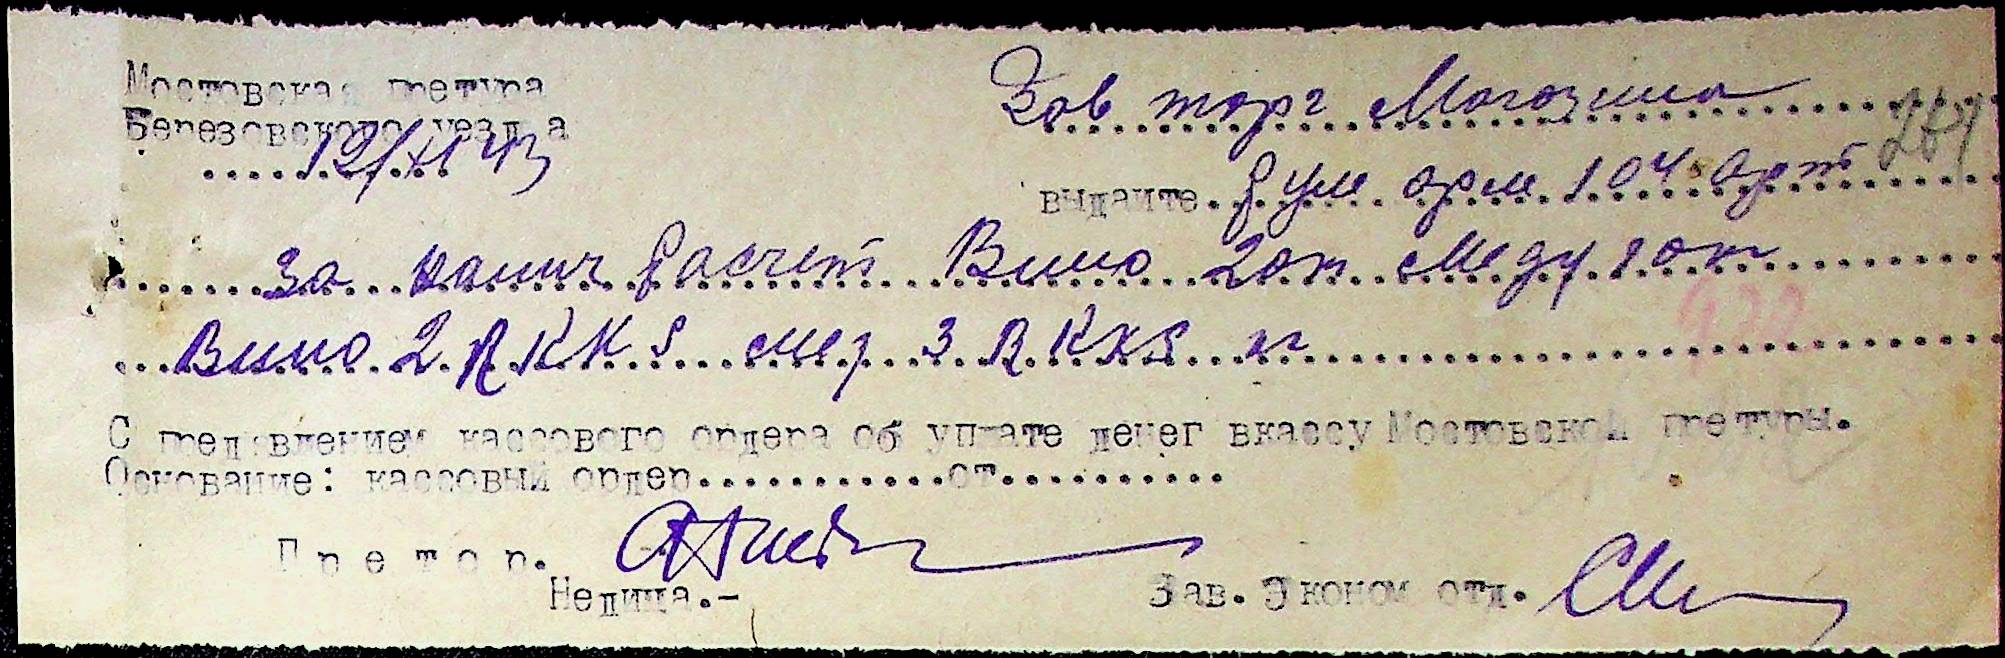 Мостовская претура
Березовского уезда
12/XI 43
Зав торг Магазина
264
выдаите рум арм. 104 арт
за налич расчет Вино 20 л меду 1 ол
Вино 2 RKKS мед 3 RKKS кг
С предявлением кассового ордера об уплате денег вкассу Мостовской претуры.
Основание: кассовый ордер............от...........
Претор.
Недица.-
Зав. Эконом отд.